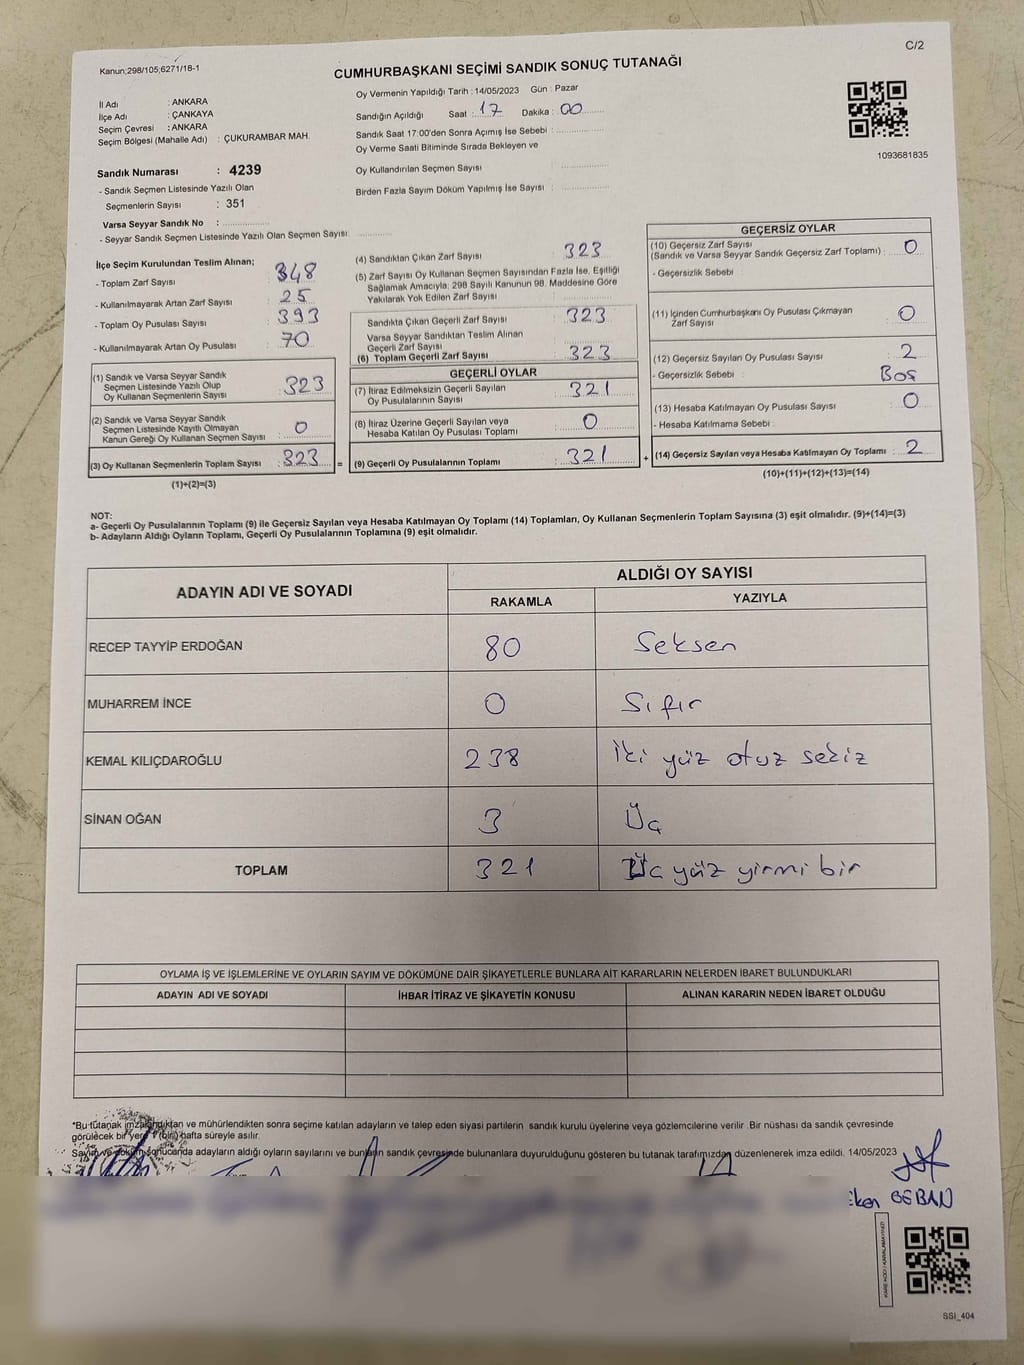 C/2
Kanun;298/105;6271/18-1
CUMHURBAŞKANI SEÇİMİ SANDIK SONUÇ TUTANAĞI
İl Adı : ANKARA
İlçe Adı : ÇANKAYA
Seçim Çevresi : ANKARA
Seçim Bölgesi (Mahalle Adı) : ÇUKURAMBAR MAH.
Oy Vermenin Yapıldığı Tarih : 14/05/2023 Gün : Pazar
Sandığın Açıldığı Saat : 17 Dakika : 00
Sandık Saat 17:00'den Sonra Açımış İse Sebebi :
Oy Verme Saati Bitiminde Sırada Bekleyen ve
Oy Kullandırılan Seçmen Sayısı
Birden Fazla Sayım Döküm Yapılmış İse Sayısı :
1093681835
Sandık Numarası : 4239
- Sandık Seçmen Listesinde Yazılı Olan
Seçmenlerin Sayısı : 351
Varsa Seyyar Sandık No :
- Seyyar Sandık Seçmen Listesinde Yazılı Olan Seçmen Sayısı:
İlçe Seçim Kurulundan Teslim Alınan;
- Toplam Zarf Sayısı : 348
- Kullanılmayarak Artan Zarf Sayısı : 25
- Toplam Oy Pusulası Sayısı : 393
- Kullanılmayarak Artan Oy Pusulası : 70
(1) Sandık ve Varsa Seyyar Sandık
Seçmen Listesinde Yazılı Olup
Oy Kullanan Seçmenlerin Sayısı : 323
(2) Sandık ve Varsa Seyyar Sandık
Seçmen Listesinde Kayıtlı Olmayan
Kanun Gereği Oy Kullanan Seçmen Sayısı : 0
(3) Oy Kullanan Seçmenlerin Toplam Sayısı : 323 =
(1)+(2)=(3)
(4) Sandıktan Çıkan Zarf Sayısı : 323
(5) Zarf Sayısı Oy Kullanan Seçmen Sayısından Fazla İse, Eşitliği
Sağlamak Amacıyla; 298 Sayılı Kanunun 98. Maddesine Göre
Yakılarak Yok Edilen Zarf Sayısı :
Sandıkta Çıkan Geçerli Zarf Sayısı : 323
Varsa Seyyar Sandıktan Teslim Alınan
Geçerli Zarf Sayısı
(6) Toplam Geçerli Zarf Sayısı : 323
GEÇERLİ OYLAR
(7) İtiraz Edilmeksizin Geçerli Sayılan
Oy Pusulalarının Sayısı : 321
(8) İtiraz Üzerine Geçerli Sayılan veya
Hesaba Katılan Oy Pusulası Toplamı : 0
(9) Geçerli Oy Pusulalarının Toplamı : 321 +
GEÇERSİZ OYLAR
(10) Geçersiz Zarf Sayısı
(Sandık ve Varsa Seyyar Sandık Geçersiz Zarf Toplamı) : 0
- Geçersizlik Sebebi
(11) İçinden Cumhurbaşkanı Oy Pusulası Çıkmayan
Zarf Sayısı : 0
(12) Geçersiz Sayılan Oy Pusulası Sayısı : 2
- Geçersizlik Sebebi : Boş
(13) Hesaba Katılmayan Oy Pusulası Sayısı : 0
- Hesaba Katılmama Sebebi :
(14) Geçersiz Sayılan veya Hesaba Katılmayan Oy Toplamı : 2
(10)+(11)+(12)+(13)=(14)
NOT:
a- Geçerli Oy Pusulalarının Toplamı (9) ile Geçersiz Sayılan veya Hesaba Katılmayan Oy Toplamı (14) Toplamları, Oy Kullanan Seçmenlerin Toplam Sayısına (3) eşit olmalıdır. (9)+(14)=(3)
b- Adayların Aldığı Oyların Toplamı, Geçerli Oy Pusulalarının Toplamına (9) eşit olmalıdır.
ADAYIN ADI VE SOYADI ALDIĞI OY SAYISI
RAKAMLA YAZIYLA
RECEP TAYYİP ERDOĞAN 80 Seksen
MUHARREM İNCE 0 Sıfır
KEMAL KILIÇDAROĞLU 238 İki yüz otuz sekiz
SİNAN OĞAN 3 Üç
TOPLAM 321 Üç yüz yirmi bir
OYLAMA İŞ VE İŞLEMLERİNE VE OYLARIN SAYIM VE DÖKÜMÜNE DAİR ŞİKAYETLERLE BUNLARA AİT KARARLARIN NELERDEN İBARET BULUNDUKLARI
ADAYIN ADI VE SOYADI İHBAR İTİRAZ VE ŞİKAYETİN KONUSU ALINAN KARARIN NEDEN İBARET OLDUĞU
*Bu tutanak imzalandıktan ve mühürlendikten sonra seçime katılan adayların ve talep eden siyasi partilerin sandık kurulu üyelerine veya gözlemcilerine verilir. Bir nüshası da sandık çevresinde
görülecek bir yere 1 (bir) hafta süreyle asılır.
Sayım ve döküm sonucunda adayların aldığı oyların sayılarını ve bunların sandık çevresinde bulunanlara duyurulduğunu gösteren bu tutanak tarafımızdan düzenlenerek imza edildi. 14/05/2023
KARE KODU KARALAMAYINIZ!
SSI_404